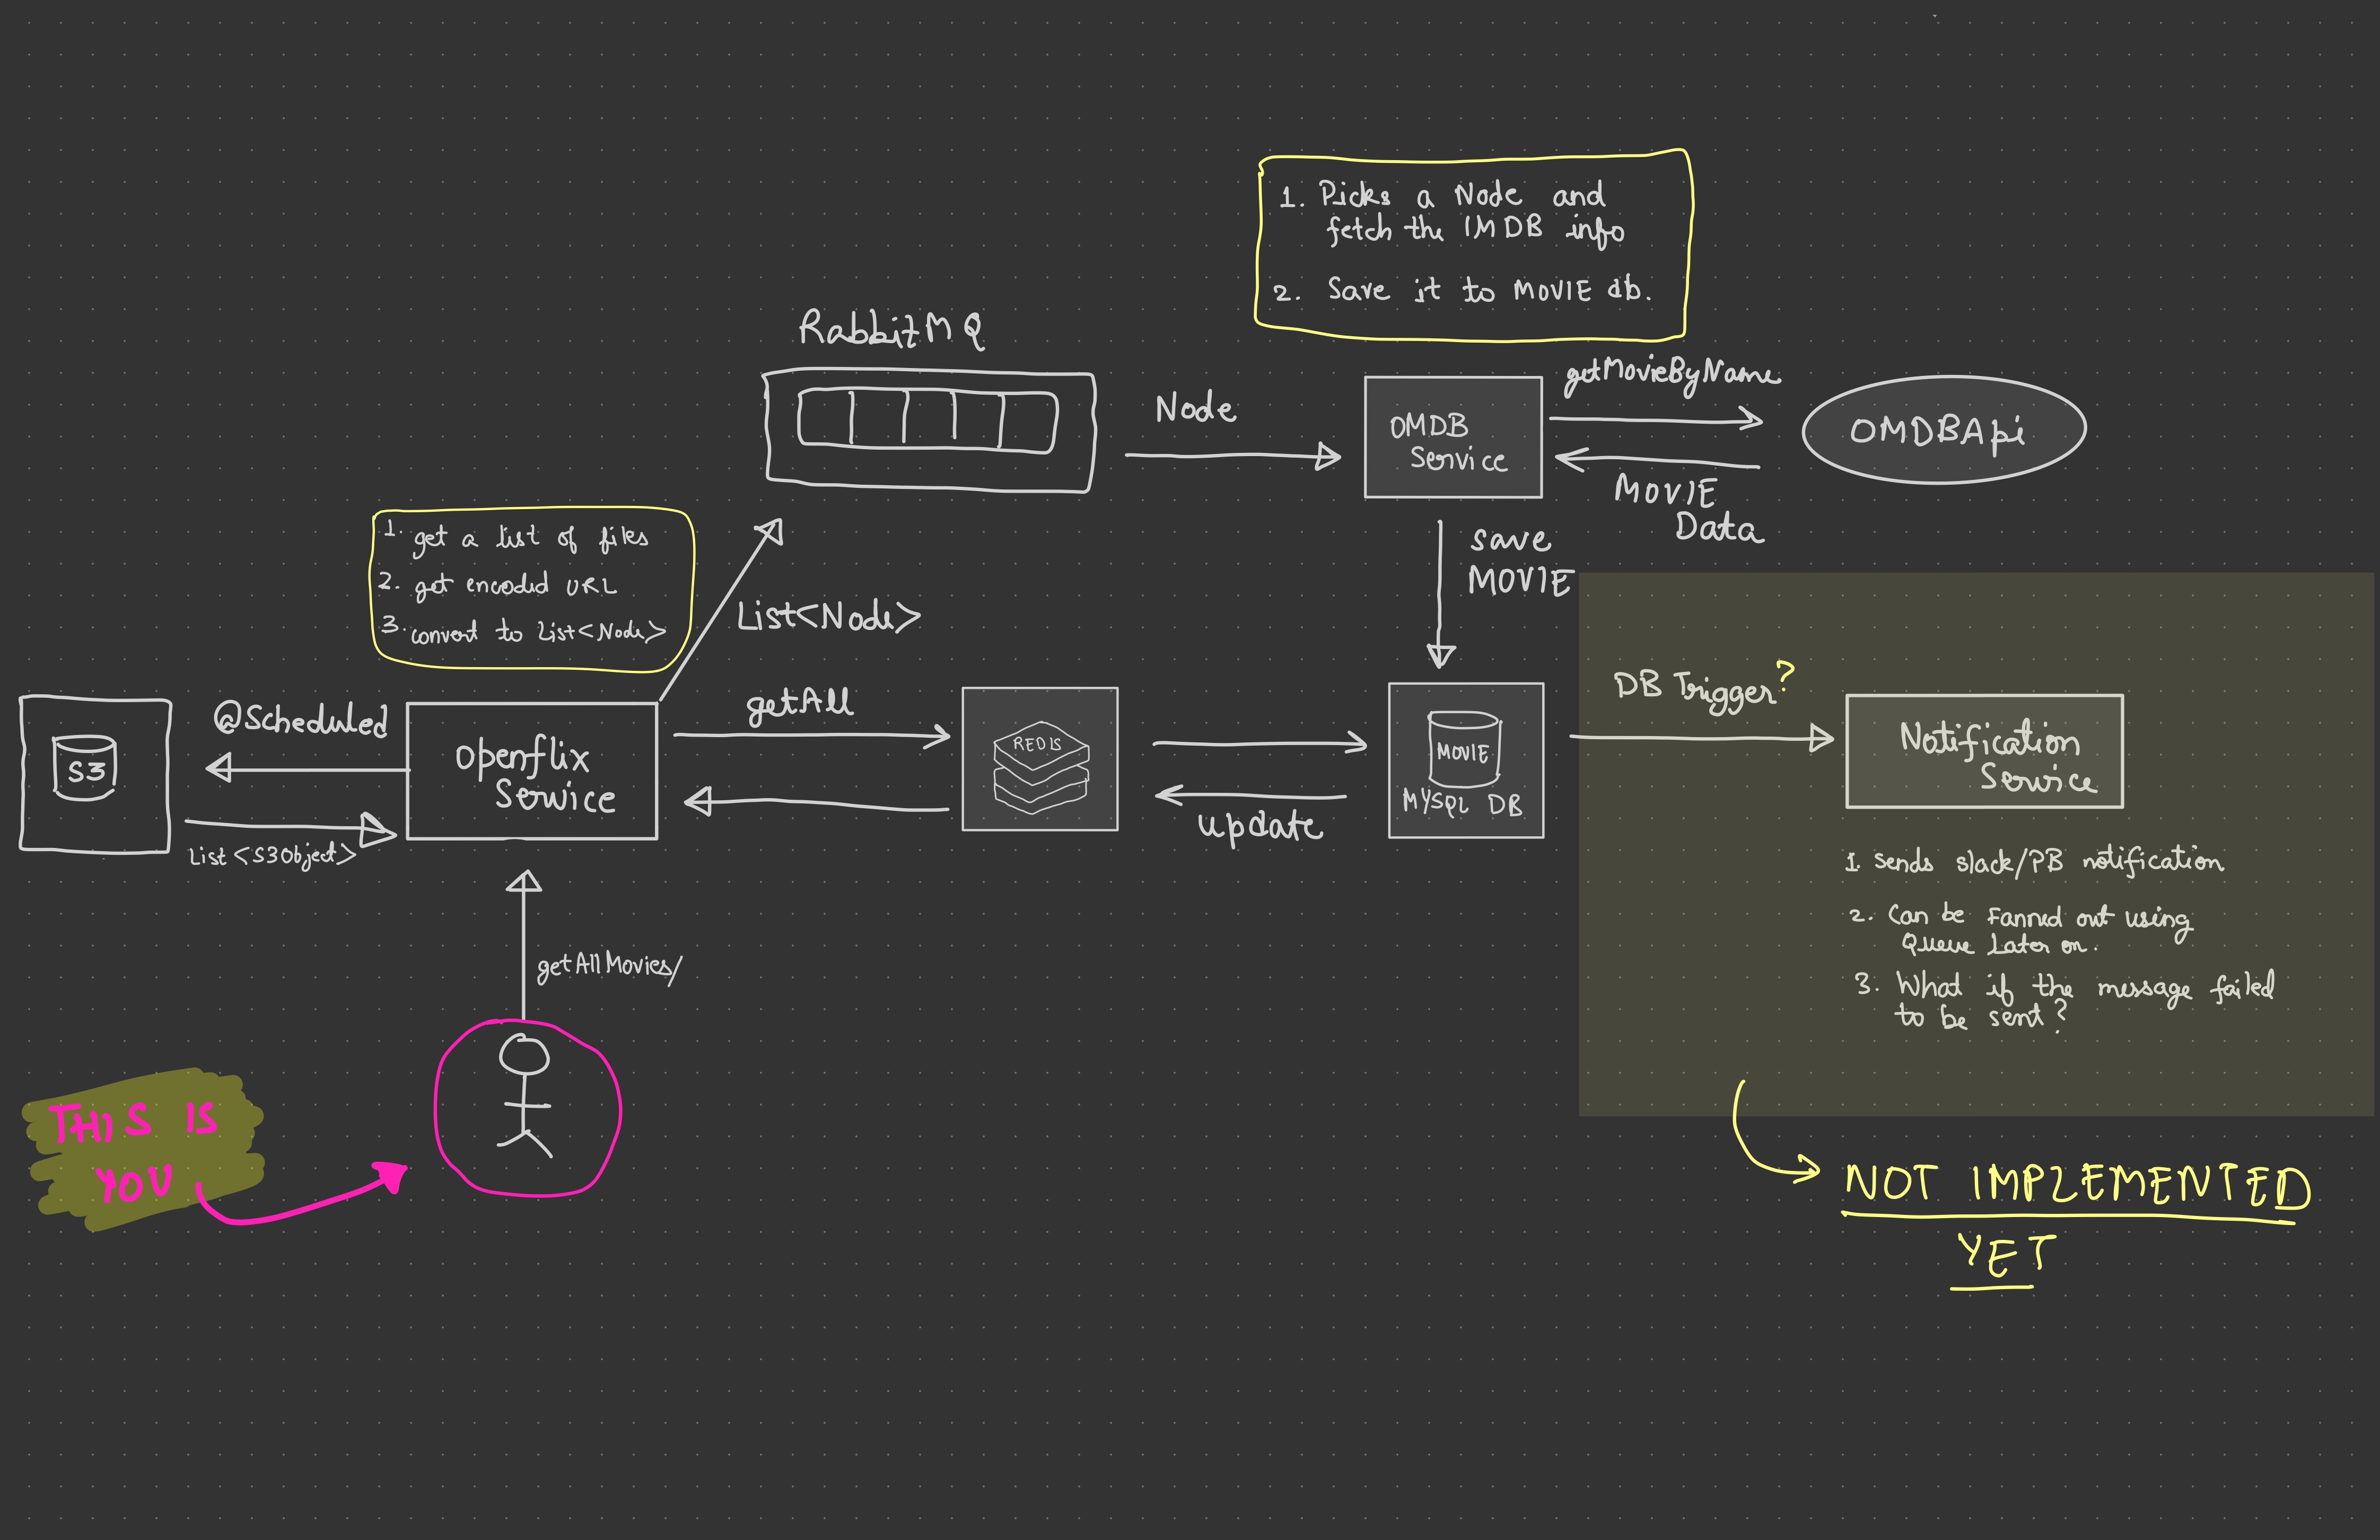 1. Picks a Node and
fetch the IMDB info
2. Save it to MOVIE db.
RabbitMQ
Node
OMDB
Service
getMovieByName
OMDBApi
MOVIE
Data
save
MOVIE
1. get a list of files
2. get encoded URL
3. convert to List<Node>
List<Node>
S3
@Scheduled
List<S3Object>
Openflix
Service
getAll
REDIS
update
MOVIE
MYSQL DB
DB Trigger?
Notification
Service
1. Sends slack/PB notification
2. Can be Fanned out using
Queue Later on.
3. What if the message failed
to be sent?
getAllMovies/
THIS IS
YOU
NOT IMPLEMENTED
YET